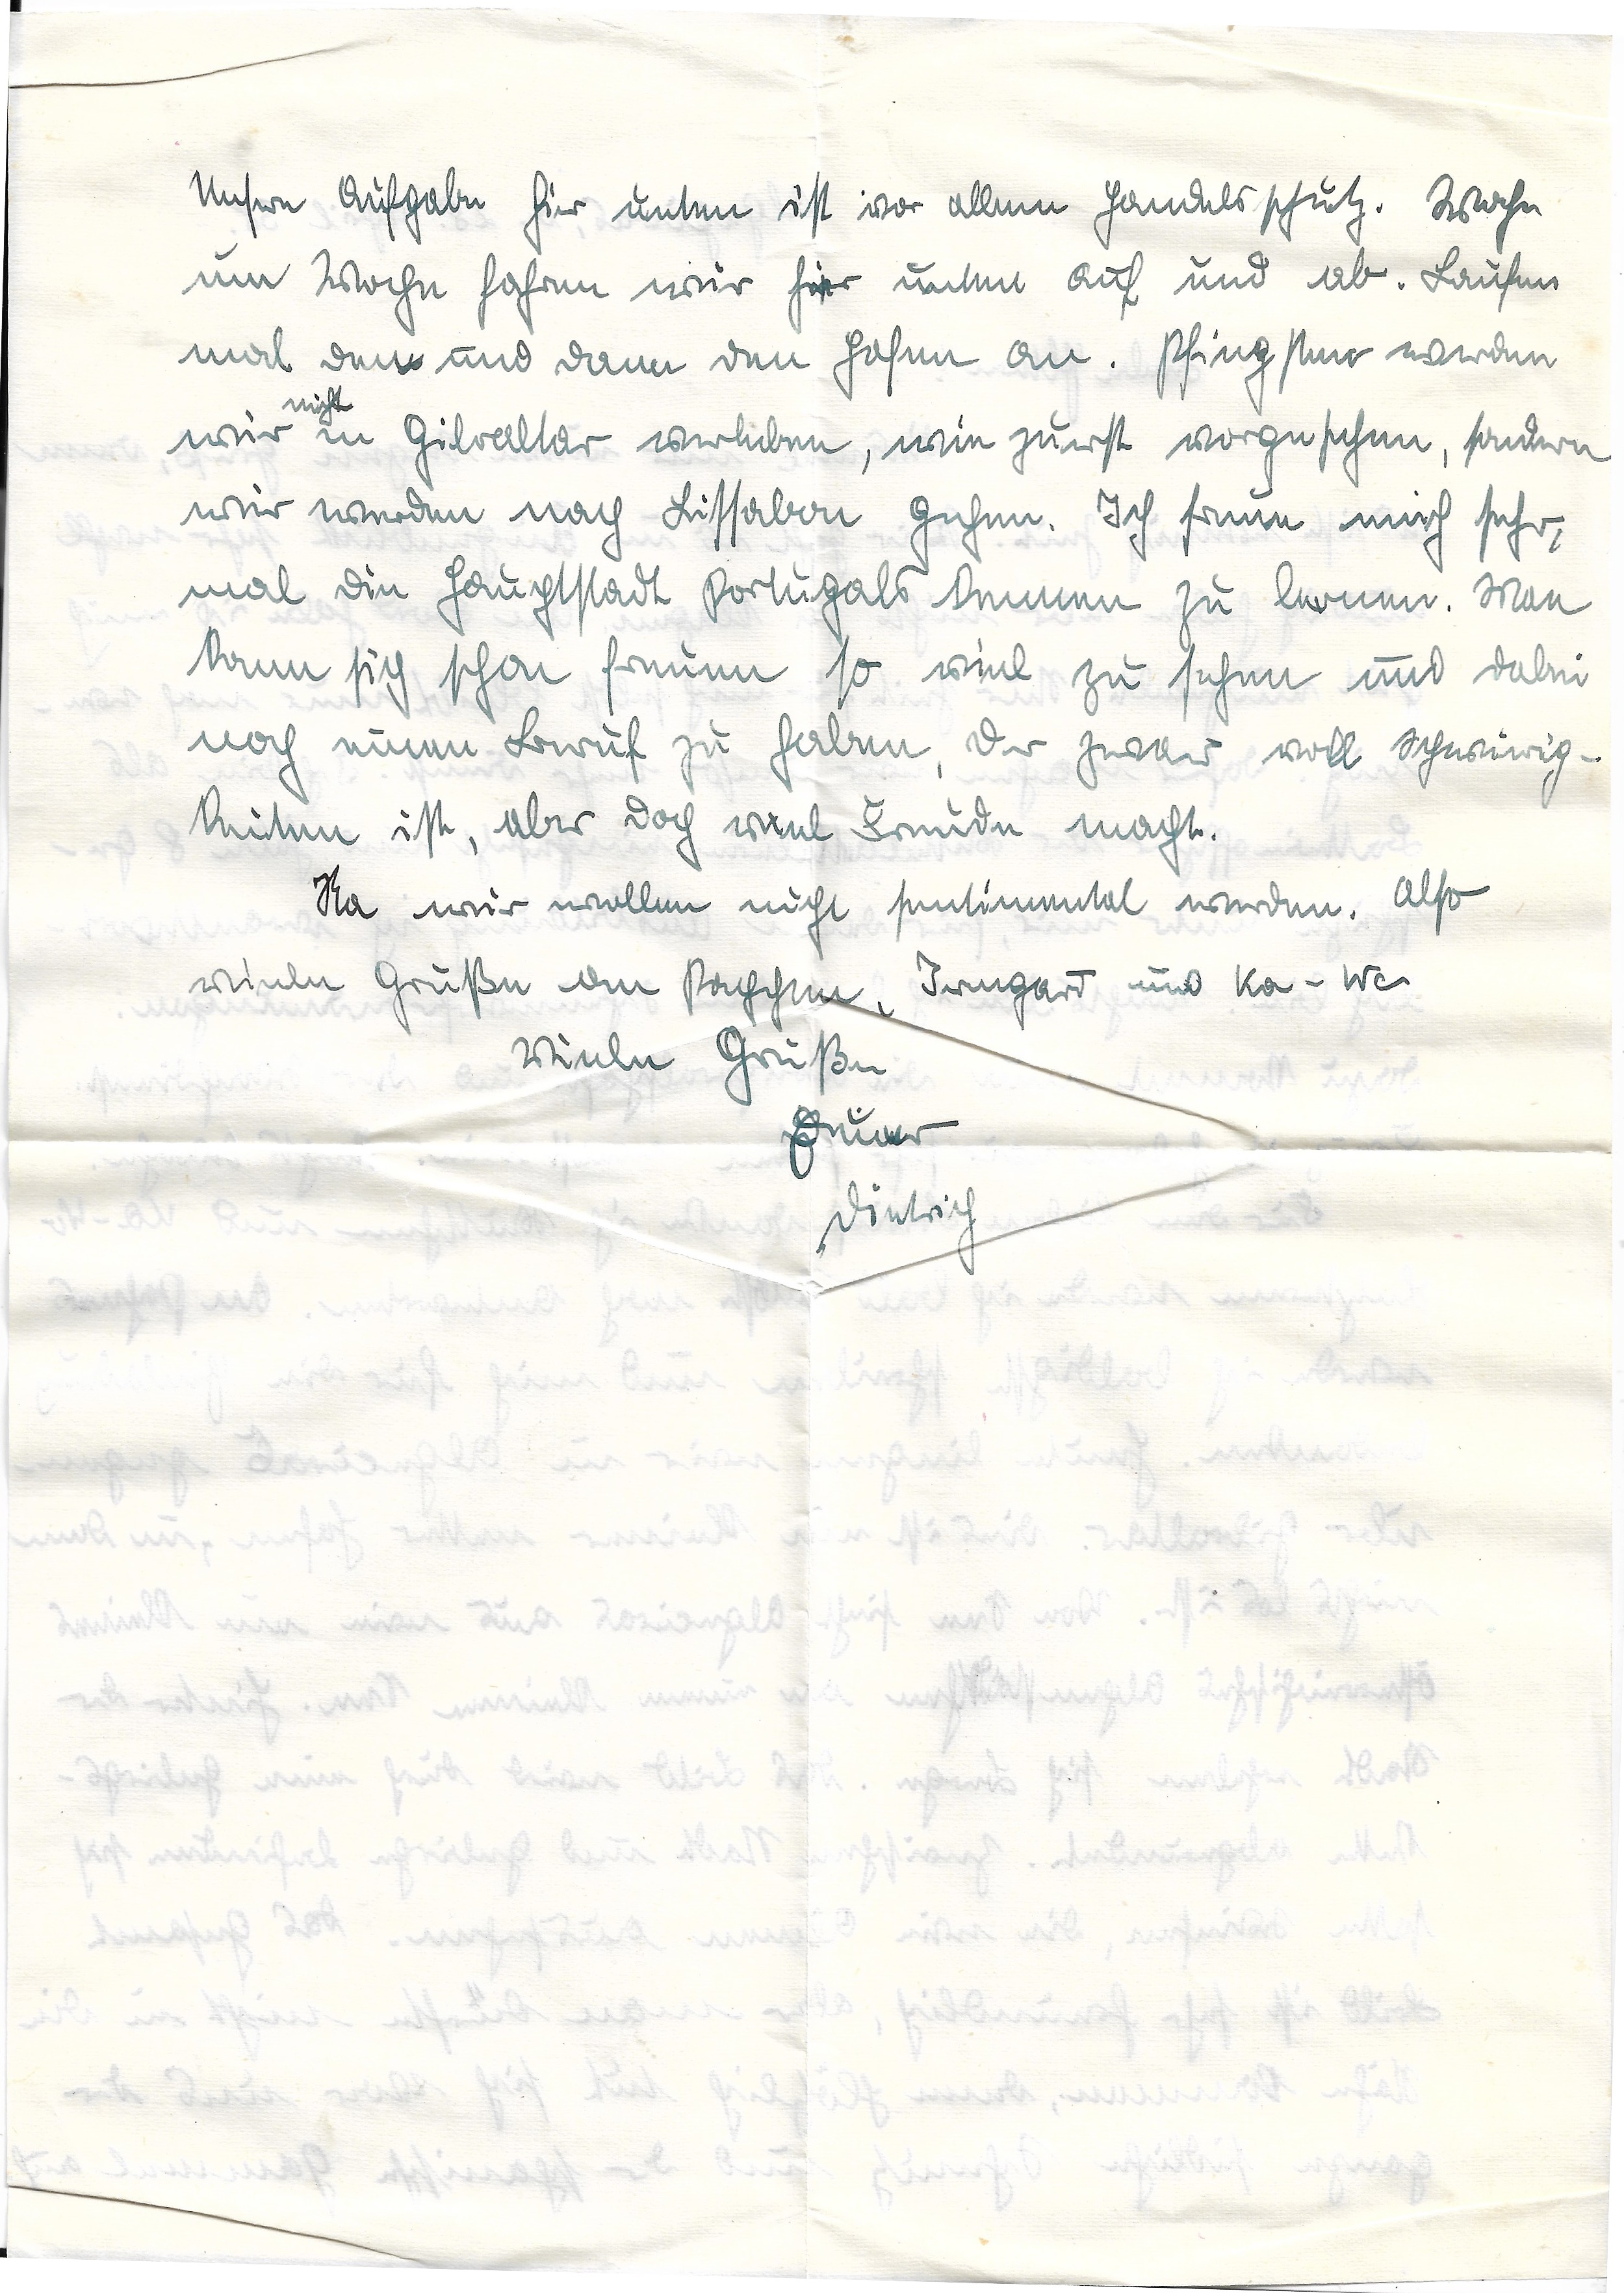 Unsere Aufgabe hier unten ist vor allem Handelsschutz. Woche
um Woche fahren wir hier unten auf und ab. Laufen
mal den und dann den Hafen an. Pfingsten werden
wir nicht in Gibraltar verleben, wie zuerst vorgesehen, sondern
wir werden nach Lissabon gehen. Ich freue mich sehr,
mal die Hauptstadt Portugals kennen zu lernen. Man
kann sich schon freuen so viel zu sehen und dabei
noch einen Beruf zu haben, der zwar voll Schwierig-
keiten ist, aber doch viel Freude macht.
Na wir wollen nicht sentimental werden. Also
viele Grüße an, Irmgard und Ka-We
Viele Grüße
Euer
Dietrich